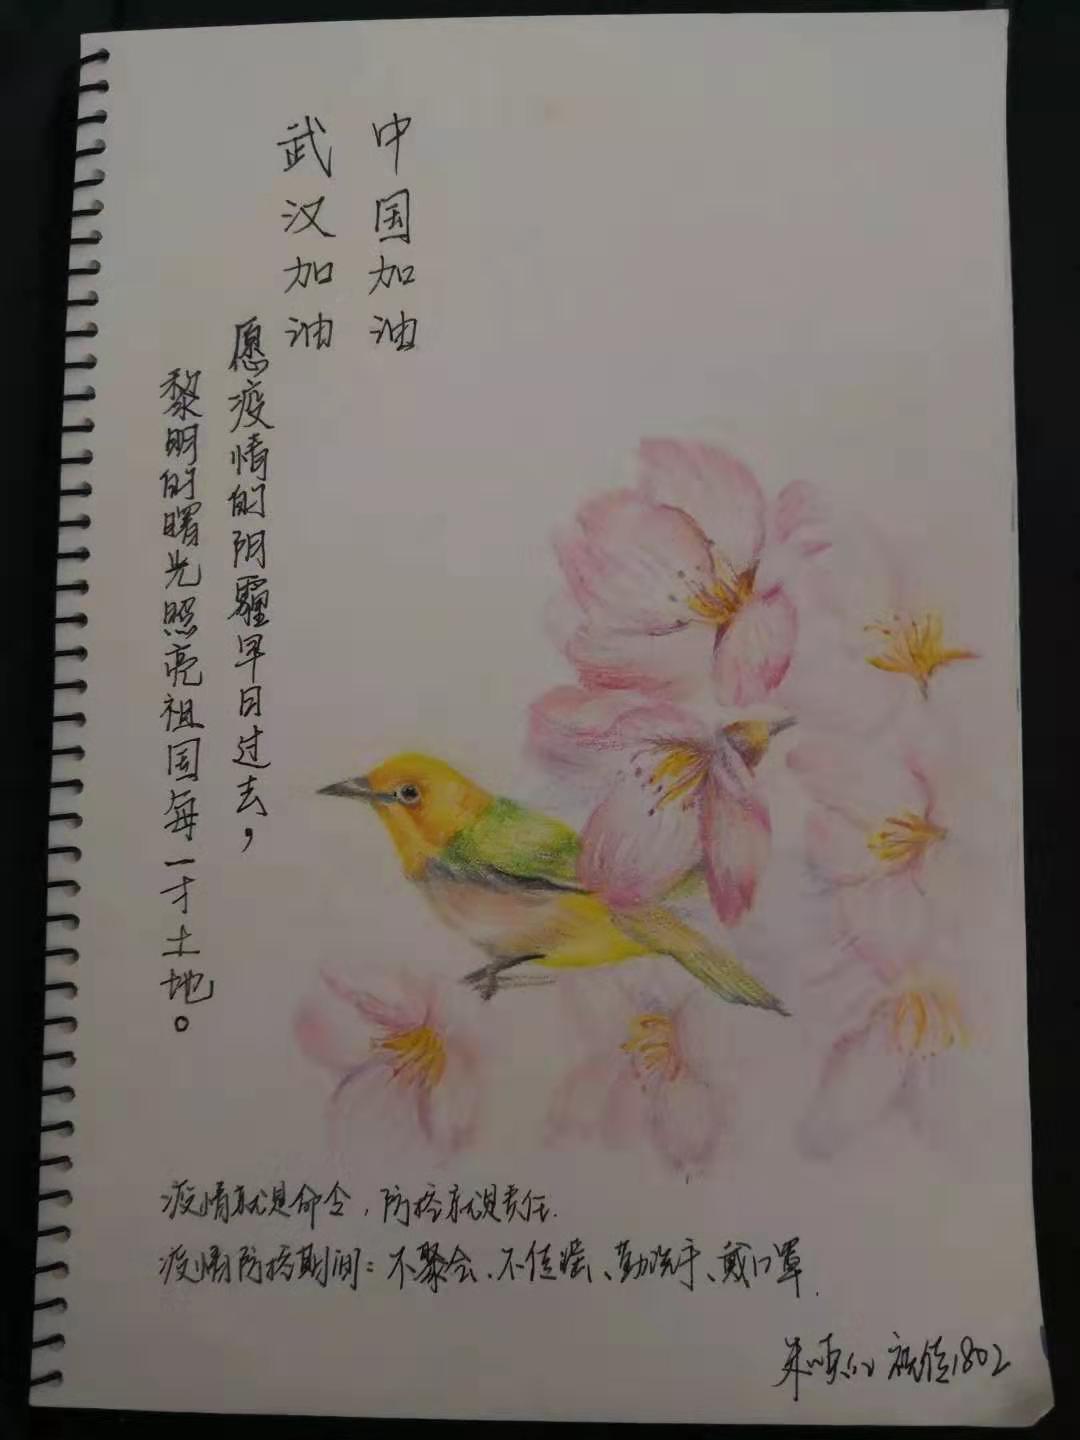 中国加油
武汉加油
愿疫情的阴霾早日过去，
黎明的曙光照亮祖国每一寸土地。
疫情就是命令，防控就是责任.
疫情防控期间：不聚会、不信谣、勤洗手、戴口罩.
1802